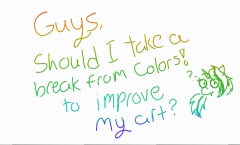 Guys,
Should I take a
break from Colors!
to improve
my art?